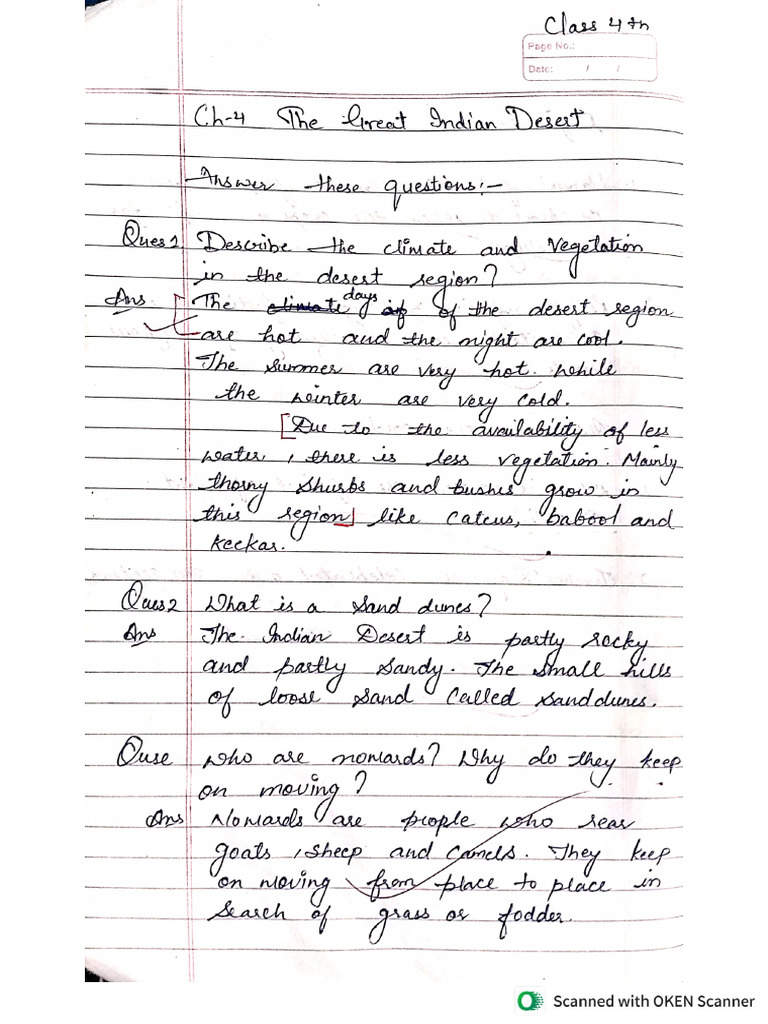 Class 4th
Page No.:
Date: / /
Ch-4 The Great Indian Desert
Answer these questions:-
Ques 1 Describe the climate and vegetation
in the desert region?
Ans The climate days of of the desert region
are hot and the night are cool.
The summer are very hot. While
the winter are very cold.
[Due to the availability of less
water, there is less vegetation. Mainly
thorny shurbs and bushis grow in
this region] like catcus, babool and
keekar.
Ques 2 What is a sand dunes?
Ans The Indian Desert is partly rocky
and partly sandy. The small hills
of loose sand called sanddunes.
Quse who are nomards? Why do they keep
on moving?
Ans Nomards are people who rear
goats, sheep and camels. They keep
on moving from place to place in
search of grass or fodder.
Scanned with OKEN Scanner